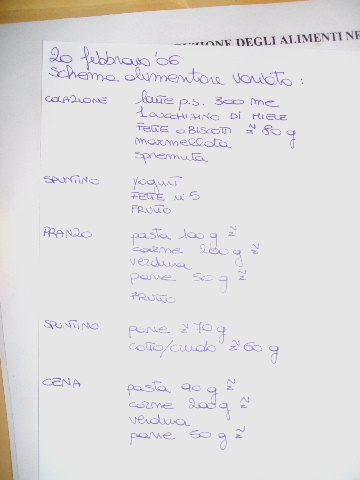 UZIONE DEGLI ALIMENTI NE
20 febbraio '06
Schema alimentare variato :
COLAZIONE latte p.s. 300 me
1 CUCCHIAINO DI MIELE
FETTE o BISCOTTI ≃ 80 g
marmellata
spremuta
SPUNTINO yogurt
FETTE n° 5
FRUTTO
PRANZO pasta 100 g ≃
carne 200 g ≃
verdura
pane 50 g ≃
FRUTTO
SPUNTINO pane ≃ 70 g
cotto/crudo ≃ 60 g
CENA pasta 90 g ≃
carne 200 g ≃
verdura
pane 50 g ≃